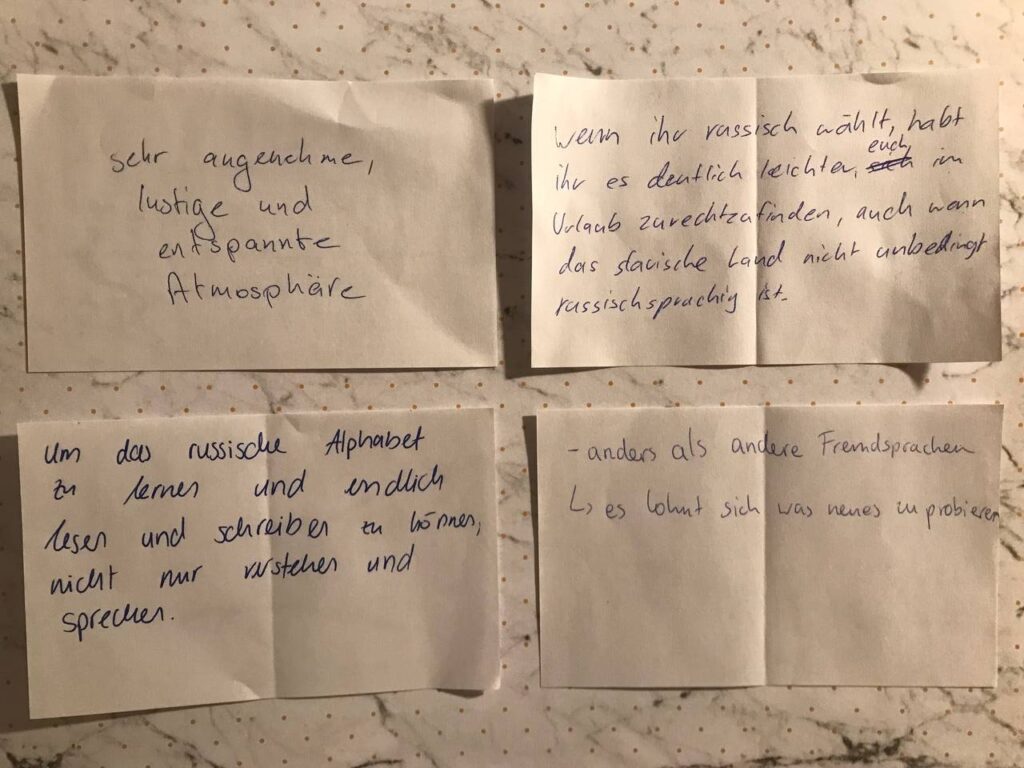 sehr angenehme,
lustige und
entspannte
Atmosphäre
Wenn ihr russisch wählt, habt
ihr es deutlich leichter, euch im
Urlaub zurechtzufinden, auch wenn
das slavische Land nicht unbedingt
russischsprachig ist.
Um das russische Alphabet
zu lernen und endlich
lesen und schreiben zu können,
nicht nur verstehen und
sprechen.
- anders als andere Fremdsprachen
↳ es lohnt sich was neues zu probieren